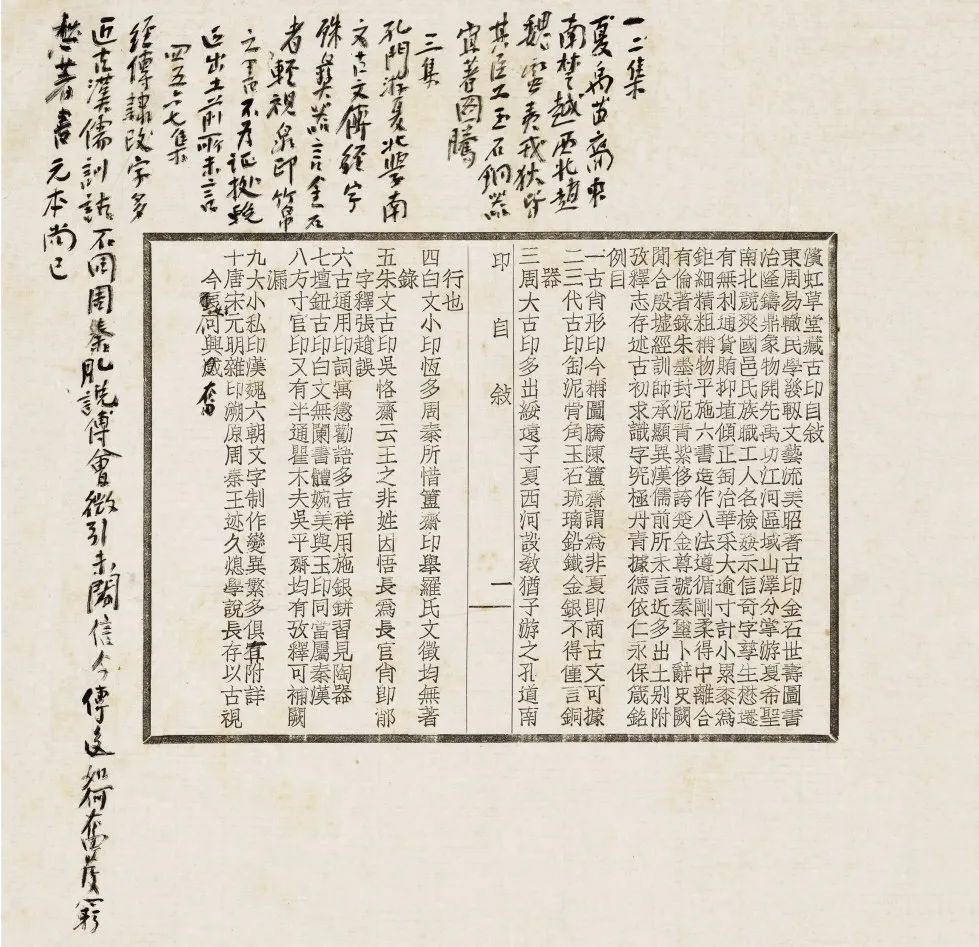 一二集
夏禹苗裔東
南楚越西北趙
魏蛮夷戎狄皆
其臣工玉石銅器
宜著圖騰
三集
孔門游夏北學南
文古文傳經字
殊彝器言金石
者輕視泉印竹帛
之書不為証據
近出土前所未言
四五六七集
經傳隸改字多
近古漢儒訓詁不同周秦
說傅會徵引未
信今傳
著書元本尚已
濱虹草堂藏古印自敘
東周易轍民學發軔文藝流美昭著古印金石世壽圖書
冶隆鑄鼎象物開先禹功江河區域山澤分掌游夏希聖
南北競爽國邑氏族職工人名檢姦示信奇字孳生懋遷
有無利通貨賄抑埴傾正匋冶華采大逾寸計小累黍為
鉅細精粗稱物平施六書造作八法遵循剛柔得中離合
有倫著錄朱墨封泥青紫侈誇楚金尊號秦璽卜辭史闕
聞合殷墟經訓師承顯異漢儒前所未言近多出土別附
攷釋志存述古初求識字究極丹青據德依仁永保箴銘
例目
一古肖形印今稱圖騰陳簠齋謂為非夏即商古文可據
二三代古印匋泥骨角玉石琉璃鉛鐵金銀不得僅言銅
器
三周大古印多出綏遠子夏西河設教猶子游之孔道南
印 自 敘 一
行也
四白文小印恆多周秦所惜簠齋印舉羅氏文徵均無著
錄
五朱文古印吳愙齋云王之非姓因悟長為長官肖即鄁
字釋張趙誤
六古通用印詞寓懲勸語多吉祥用施銀鉼習見陶器
七壇鈕古印白文無闌書體婉美與玉印同當屬秦漢
八方寸官印又有半通瞿木夫吳平齋均有攷釋可補闕
漏
九大小私印漢魏六朝文字制作變異繁多俱宜附詳
十唐宋元明雜印溯原周秦王迹久熄學說長存以古視
今何興感奮